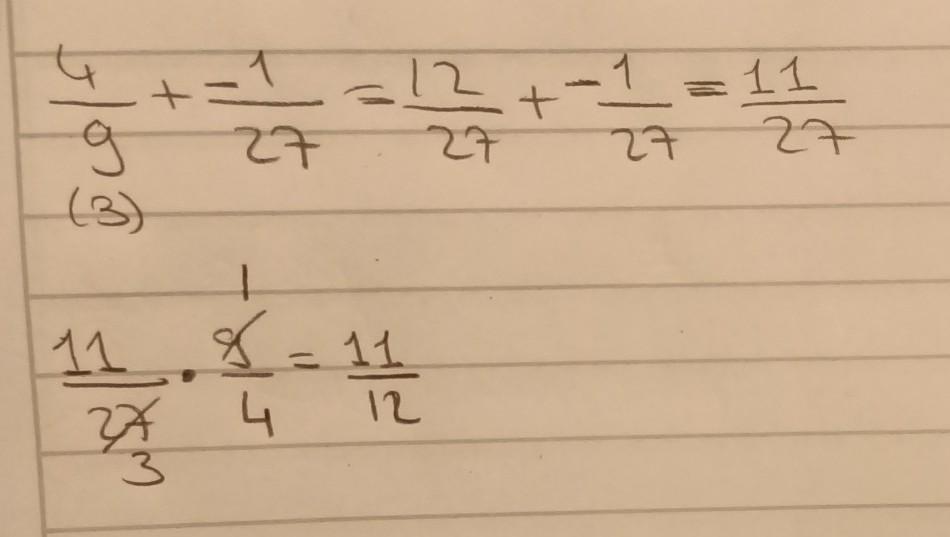 4/9 + -1/27 = 12/27 + -1/27 = 11/27
(3)
1
11/27 · 9/4 = 11/12
3